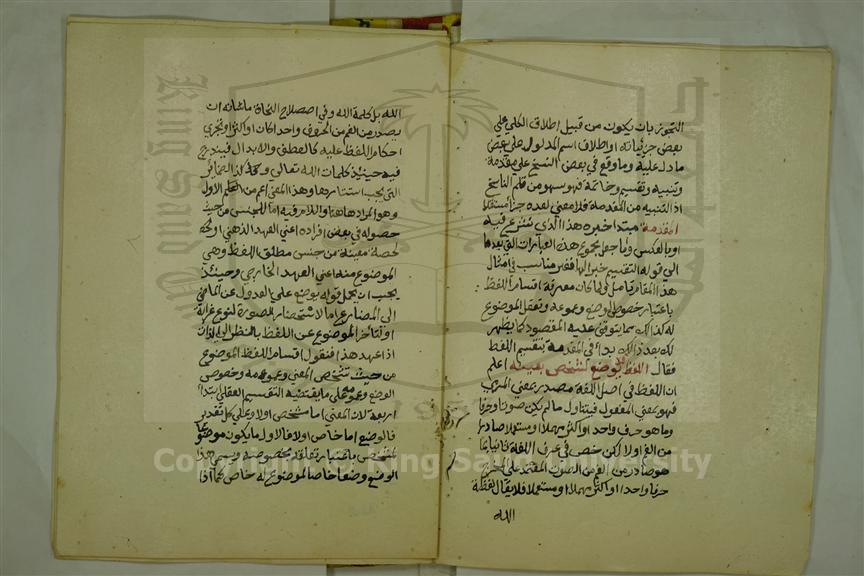 التجوز بان يكون من قبيل اطلاق الكلي على
بعض جزئياته او اطلاق اسم المدلول على بعض
ما دل عليه وما وقع في بعض النسخ على مقدمة
وتنبيه وتقسيم وخاتمة فهو سهو من قلم الناسخ
اذ التنبيه من المقدمة فلا معنى لعده جزأ مستقلا
المقدمة مبتدا خبره هذا الذي نشرع فيه
او بالعكس وما جعل مجموع هذه العبارات التي بعدها
الى قوله التقسيم خبرا لها فغير مناسب في امثال
هذا المقام فاصل في لما كان معرفة اقسام اللفظ
باعتبار خصوص الوضع وعمومه وتعقل الموضوع
له لذلك مما يتوقف عليه المقصود كما يظهر
لك بعد ذلك بدأ في المقدمة بتقسيم اللفظ
فقال اللفظ قد يوضع لشخص بعينه اعلم
ان اللفظ في اصل اللغة مصدر بمعنى الرمي
فهو بمعنى المفعول فيتناول ما لم يكن صوتا وحرفا
وما هو حرف واحد او اكثر مهملا او مستعملا صادرا
من الفم اولا لكن خص في عرف اللغة ثانيا بما
هو صادر من الفم من الصوت المعتمد على المخرج
حرفا واحدا او اكثر مهملا او مستعملا فلا يقال لفظة
الله
الله بل كلمة الله وفي اصطلاح النحاة ما شانه ان
يصدر من الفم من الحروف واحدا كان او اكثر او تجري
احكام اللفظ عليه كالعطف والابدال فيندرج
فيه حينئذ كلمات الله تعالى وكذا الضمائر
التي يجب استتارها وهذا المعنى اعم من المعنى الاول
وهو المراد ههنا واللام فيه اما للجنس من حيث
حصوله في بعض افراده اعني العهد الذهني او
لحصة معينة من جنس مطلق اللفظ وهي
الموضوع منه اعني العهد الخارجي وحينئذ
يجب ان يحمل قوله يوضع على العدول عن الماضي
الى المضارع اما لاستحضار الصورة لنوع غرابة
او لتأخر الموضوع عن اللفظ بالنظر الى الذات
اذا عهد هذا فنقول اقسام اللفظ الموضوع
من حيث تشخص المعنى وعمومه وخصوص
الوضع وعمومه على ما يقتضيه التقسيم العقلي ابتداء
اربعة لان المعنى اما مشخص اولا وعلى كل تقدير
فالوضع اما خاص اولا فالاول ما يكون موضوعا
لمشخص باعتبار تعقله بخصوصه ويسمى هذا
الوضع وضعا خاصا لموضوع له خاص كما اذا
Copyright © King Saud University